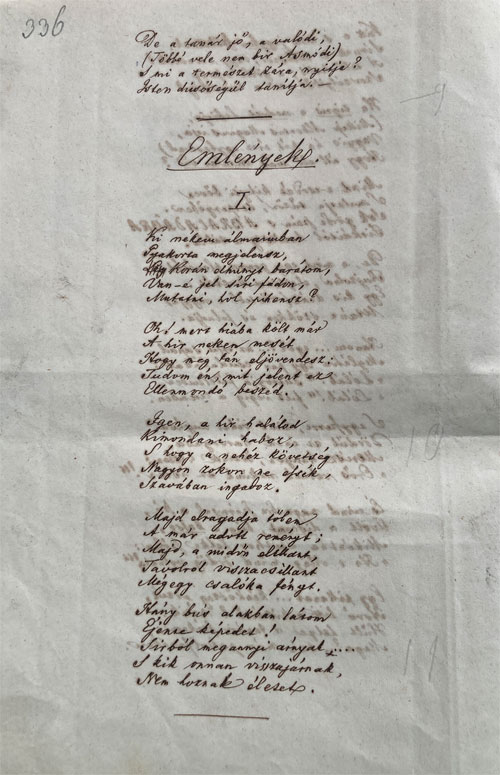 336
De a tanár jő, a valódi,
(Többé vele nem bir Asmódi)
S mi a természet zára, nyitja?
Isten dicsőségűl tanítja. —
Emlények.
I.
Ki nékem álmaimban
Gyakorta megjelensz,
Korán elhúnyt barátom,
Van-é jel síri fádon,
Mutatni, hol pihensz?
Oh! mert hiába költ már
A hir nekem mesét
Hogy még tán eljövendesz:
Tudom én, mit jelent ez
Ellenmondó beszéd.
Igen, a hir halálod
Kimondani haboz,
S hogy a nehéz követség
Nagyon zokon ne essék,
Szavában ingadoz.
Majd elragadja tőlem
A már adott reményt;
Majd, a midőn elillant,
Távolról visszacsillant
Mégegy csalóka fényt.
Hány bús alakban látom
Éjente képedet!
Sírból megannyi árnyak,...
S kik onnan visszajárnak,
Nem hoznak életet.